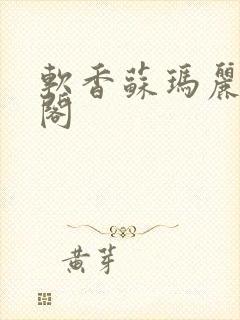 軟香蘇瑪麗
閣
黃芽